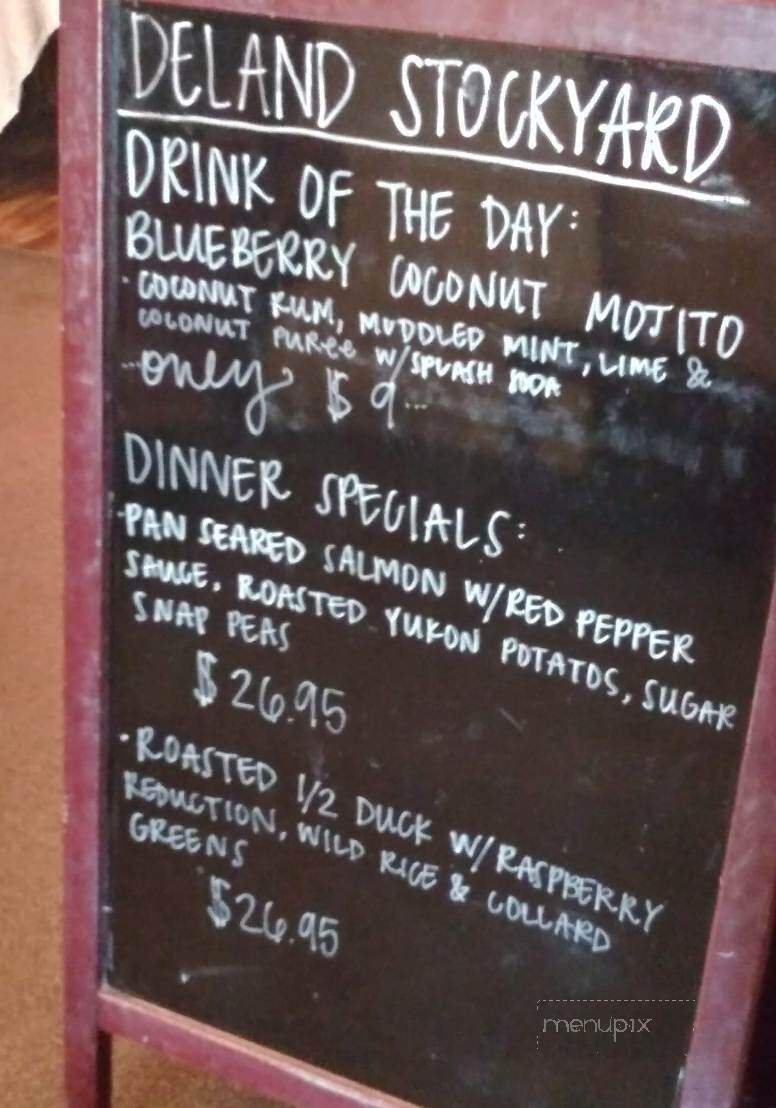 DELAND STOCKYARD
DRINK OF THE DAY:
BLUEBERRY COCONUT MOJITO
· COCONUT RUM, MUDDLED MINT, LIME &
COCONUT PUREE W/SPLASH SODA
...only $9...
DINNER SPECIALS:
-PAN SEARED SALMON W/RED PEPPER
SAUCE, ROASTED YUKON POTATOS, SUGAR
SNAP PEAS
$26.95
·ROASTED 1/2 DUCK W/RASPBERRY
REDUCTION, WILD RICE & COLLARD
GREENS
$26.95
menupix